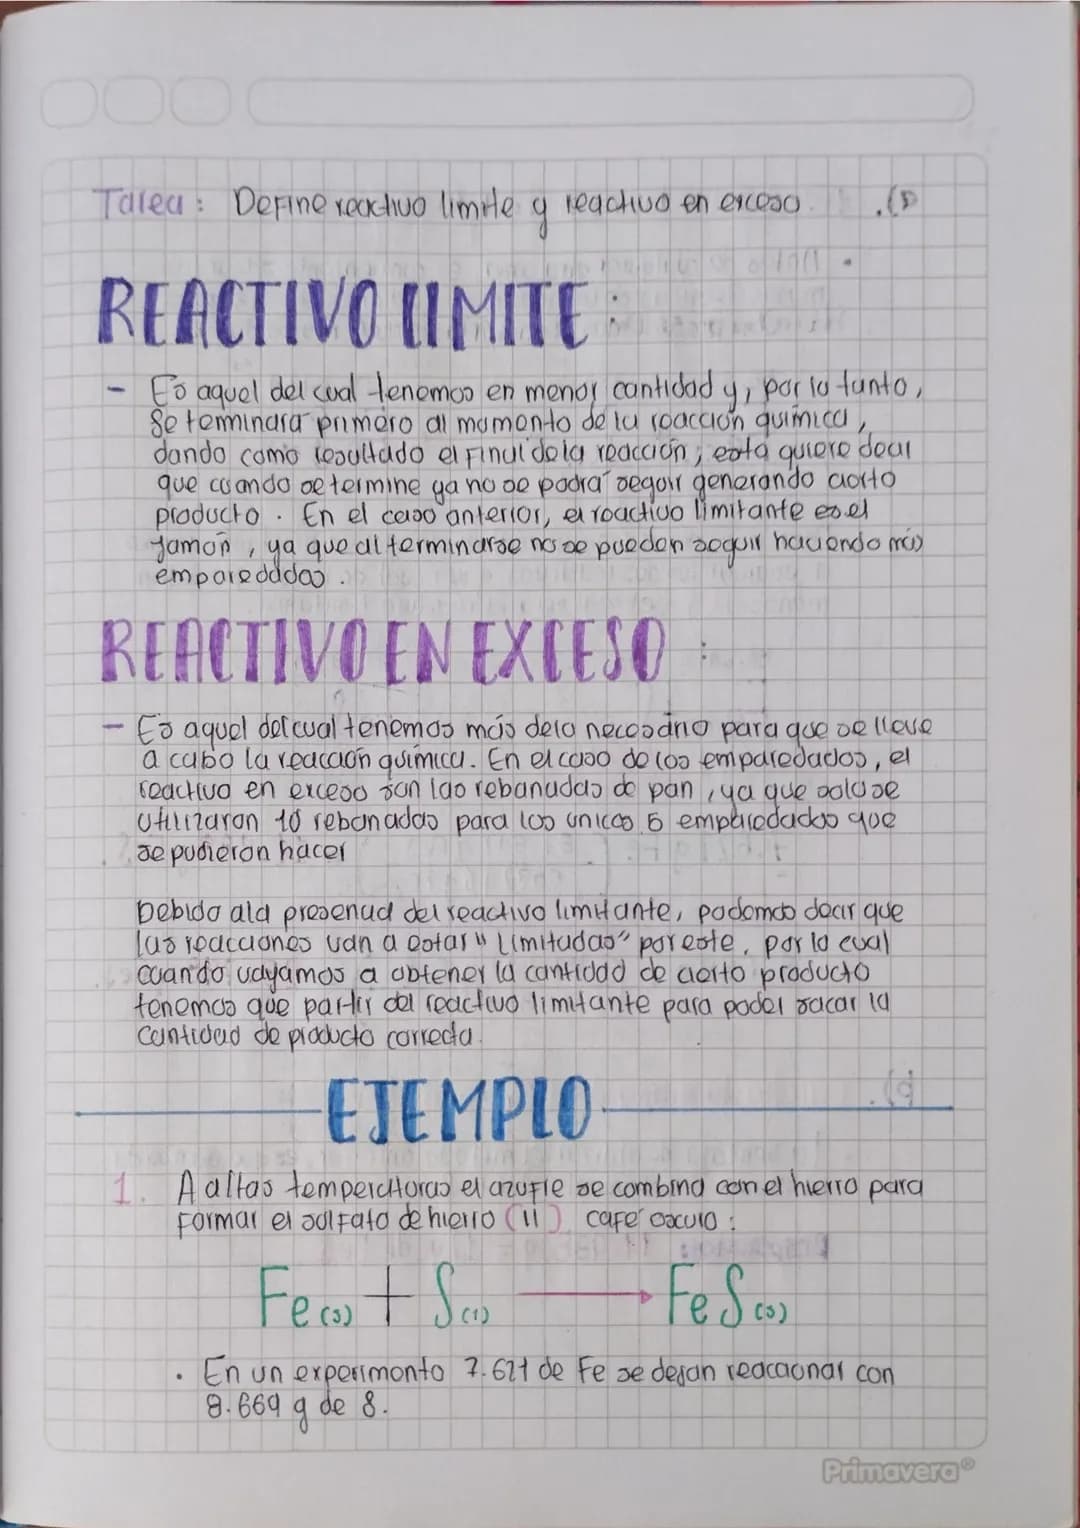 Tarea: Define reactivo limite y reactivo en exceso.
REACTIVO LIMITE:
- Es aquel del cual tenemos en menor cantidad y, por lo tanto,
se terminara primero al momento de la reacción química,
dando como resultado el final de la reacción; esta quiere decir
que cuando se termine ya no se podrá seguir generando cierto
producto. En el caso anterior, el reactivo limitante es el
jamón, ya que al terminarse no se pueden seguir haciendo más
emparedados.
REACTIVO EN EXCESO:
- Es aquel del cual tenemos más de lo necesario para que se lleve
a cabo la reacción química. En el caso de los emparedados, el
reactivo en exceso son las rebanadas de pan, ya que solo se
utilizaron 10 rebanadas para los unicos 5 emparedados que
se pudieron hacer
Debido a la presencia del reactivo limitante, podemos decir que
las reacciones van a estar "Limitadas" por este, por lo cual
cuando vayamos a obtener la cantidad de cierto producto
tenemos que partir del reactivo limitante para poder sacar la
cantidad de producto correcta.
EJEMPLO
1. A altas temperaturas el azufre se combina con el hierro para
formar el sulfato de hierro (II) café oscuro:
Fe(s) + S(l) → FeS(s)
• En un experimento 7.621 de Fe se dejan reaccionar con
8.669 g de S.
Primavera®